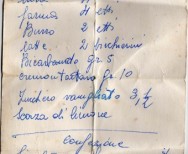 farina 4 etti
Burro 2 etti
latte 2 bicchierini
Bicarbonato gr. 5
cremortartaro gr. 10
Zucchero vanigliato 3,½
scorza di limone
confezione